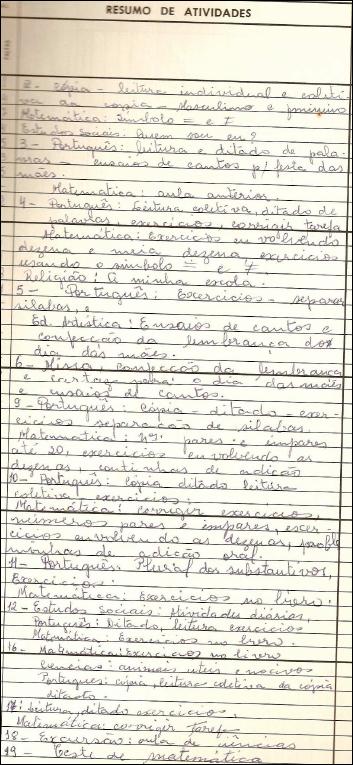 RESUMO DE ATIVIDADES
2 - cópia - leitura individual e coleti
va da cópia - Masculino e feminino
Matemática: Símbolo = e ≠
Estudos Sociais: Quem sou eu?
3 - Português: leitura e ditado de pala
vras - ensaios de cantos p/ festa das
mães.
Matemática: aula anterior.
4 - Português: Leitura coletiva, ditado de
palavras, exercícios, corrigir tarefa
Matemática: Exercícios envolvendo
dezena e meia dezena, exercícios
usando o símbolo = e ≠
Religião: A minha escola.
5 - Português: Exercícios - separar
sílabas,
Ed. Artística: Ensaios de cantos e
confecção da lembrança do
dia das mães.
6 - Missa, confecção da lembrança
e cartaz para o dia das mães
e ensaios de cantos.
9 - Português: cópia - ditado - exer-
cícios separação de sílabas.
Matemática: nos pares e ímpares
até 20, exercícios envolvendo as
dezenas, continhas de adição
10 - Português: cópia ditado leitura
coletiva exercícios;
Matemática: corrigir exercícios,
números pares e ímpares, exer-
cícios envolvendo as dezenas, proble
minhas de adição oral.
11 - Português: Plural dos substantivos,
Exercícios.
Matemática: Exercícios no livro.
12 - Estudos Sociais: Atividades diárias,
Português: Ditado, leitura exercícios
Matemática: Exercícios no livro.
16 - Matemática: Exercícios no livro
Ciências: animais úteis e nocivos
Português: cópia, leitura coletiva da cópia
ditado.
17: Leitura, ditado exercícios,
Matemática: corrigir tarefa
18 - Excursão: aula de ciências
19 - Teste de matemática